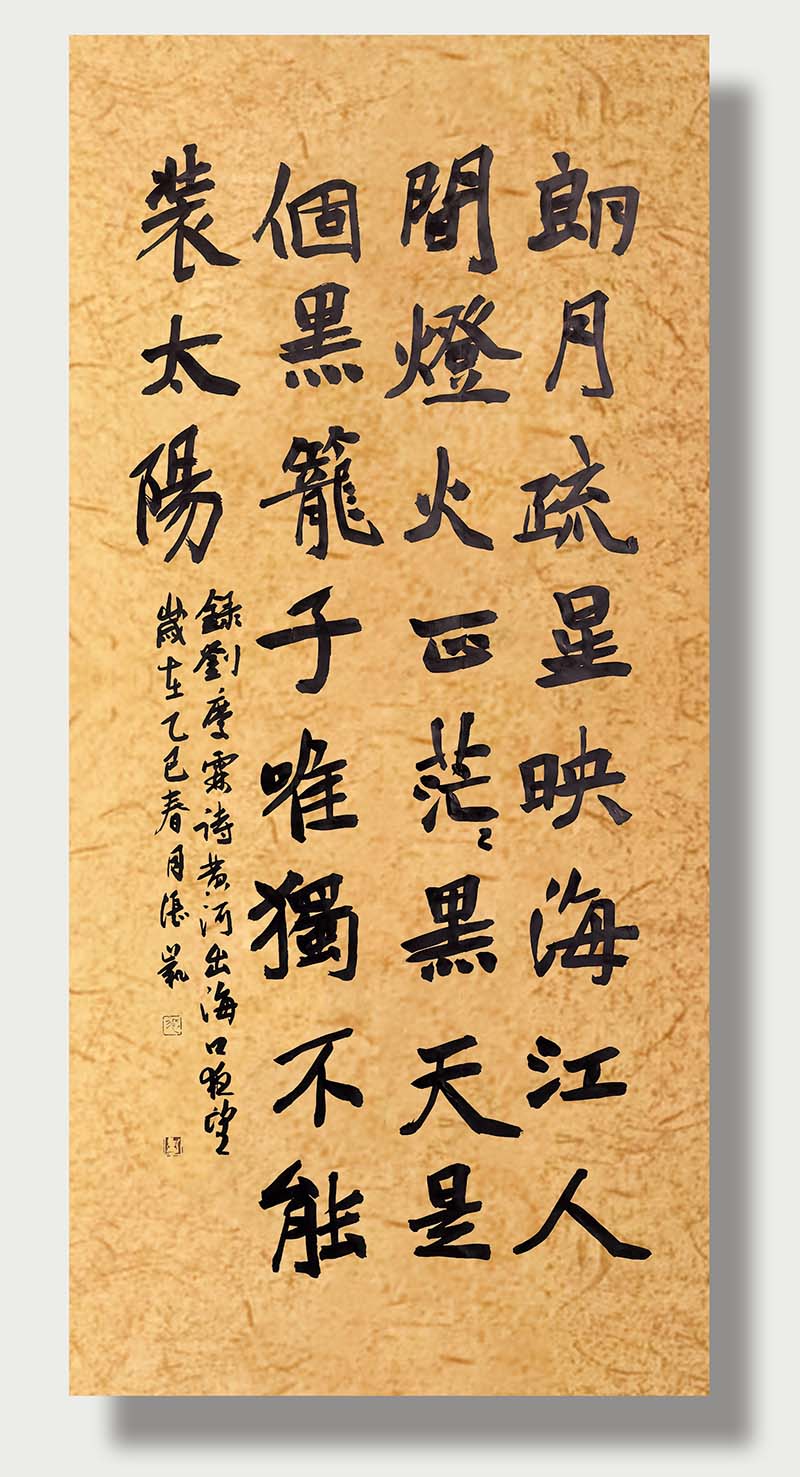 朗月疏星映海江人
間燈火正茫〻黑天是
個黑籠子唯獨不能
裝太陽
錄劉慶霖詩黃河出海口夜望
歲在乙巳春月